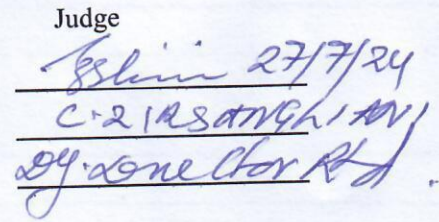 Judge
27/7/24
C. ZIRSANGLIANI
Dy. Director Rtd.